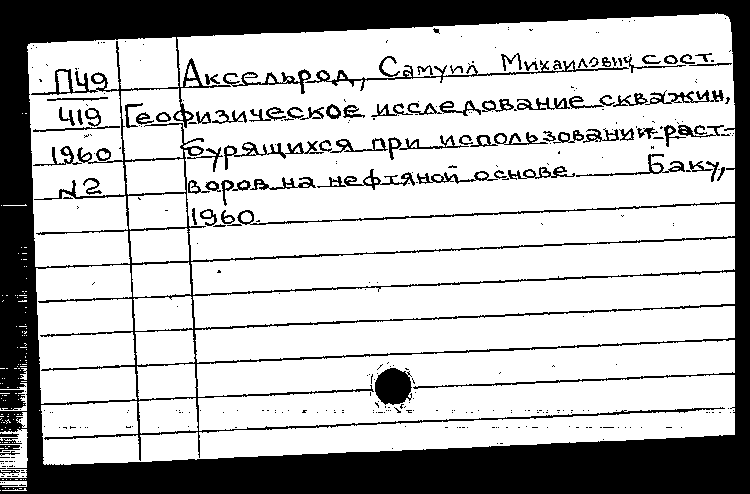 П49 Аксельрод, Самуил Михаилович сост.
419 Геофизическое исследование скважин,
1960 бурящихся при использовании раст-
N2 воров на нефтяной основе. Баку,
1960.